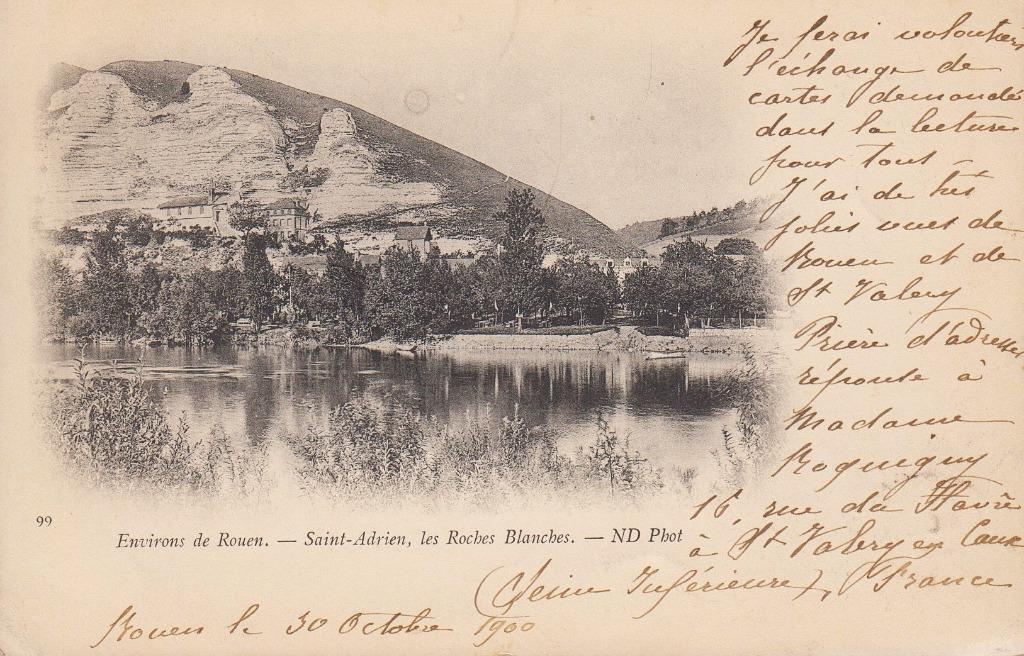 Je ferai volontiers
l'échange de
cartes demandé
dans la lecture
pour tous
J'ai de très
jolies vues de
Rouen et de
St Valery
Prière d'adresser
réponse à
Madame
Roquigny
16, rue du Havre
à St Valery en Caux
(Seine Inférieure), France
99
Environs de Rouen. — Saint-Adrien, les Roches Blanches. — ND Phot
Rouen le 30 Octobre 1900